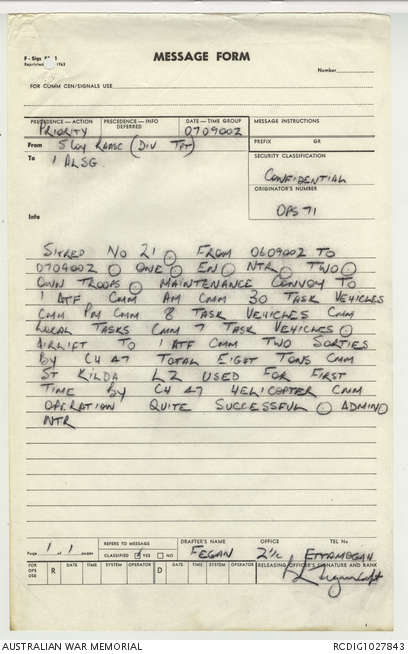 F-Sigs 1
Reprinted 1963
MESSAGE FORM
Number
FOR COMM CEN/SIGNALS USE
PRECEDENCE—ACTION
PRIORITY
PRECEDENCE—INFO
DEFERRED
DATE—TIME GROUP
070900Z
MESSAGE INSTRUCTIONS
From 5 Coy RAASC (DIV TPT)
PREFIX GR
To 1 ALSG
SECURITY CLASSIFICATION
CONFIDENTIAL
ORIGINATOR'S NUMBER
Info
OPS 71
SITREP NO 21 . FROM 060900Z TO
070900Z . ONE . EN . NTR . TWO .
OWN TROOPS . MAINTENANCE CONVOY TO
1 ATF CMM AM CMM 30 TASK VEHICLES
CMM PM CMM 8 TASK VEHICLES CMM
LOCAL TASKS CMM 7 TASK VEHICLES .
AIRLIFT TO 1 ATF CMM TWO SORTIES
BY CH 47 TOTAL EIGHT TONS CMM
ST KILDA LZ USED FOR FIRST
TIME BY CH 47 HELICOPTER CMM
OPERATION QUITE SUCCESSFUL . ADMIN .
NTR
Page 1 of 1 pages
REFERS TO MESSAGE
CLASSIFIED YES NO
DRAFTER'S NAME
FEGAN
OFFICE
2I/C
TEL No
ETTAMOGAH
FOR OPS USE
R DATE TIME SYSTEM OPERATOR
D DATE TIME SYSTEM OPERATOR
RELEASING OFFICER'S SIGNATURE AND RANK
Capt
AUSTRALIAN WAR MEMORIAL
RCDIG1027843